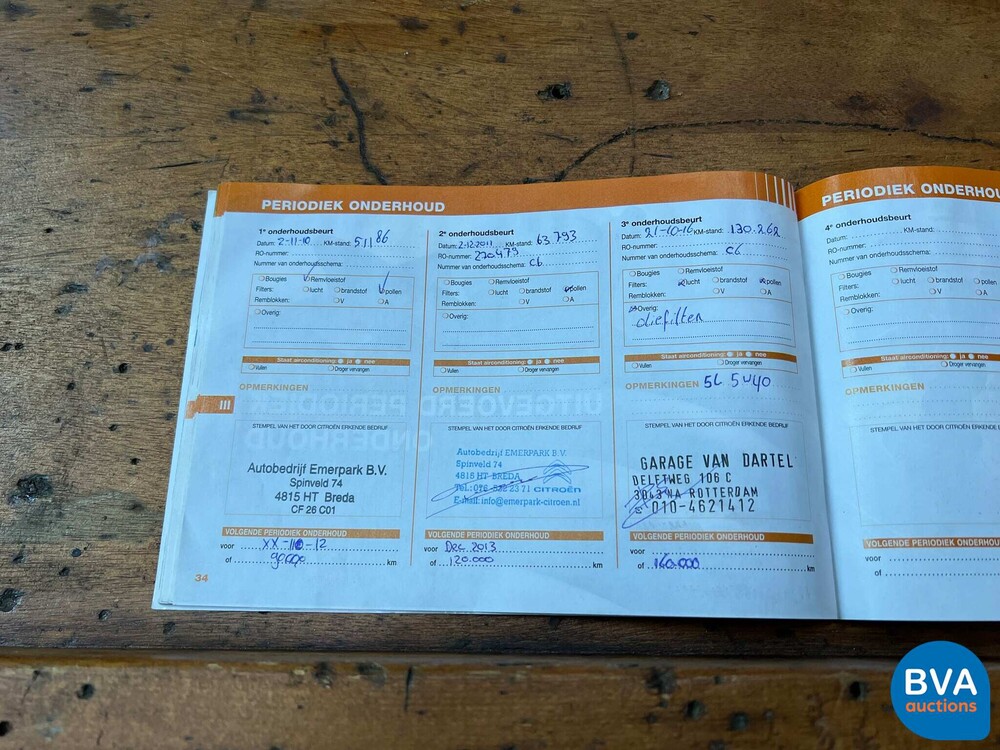 PERIODIEK ONDERHOUD
1e onderhoudsbeurt
Datum: 2-11-10 KM-stand: 51186
RO-nummer:
Nummer van onderhoudsschema:
Bougies Remvloeistof
Filters: lucht brandstof pollen
Remblokken: V A
Overig:
Staat airconditioning: ja nee
Vullen Droger vervangen
OPMERKINGEN
STEMPEL VAN HET DOOR CITROËN ERKENDE BEDRIJF
Autobedrijf Emerpark B.V.
Spinveld 74
4815 HT Breda
CF 26 C01
VOLGENDE PERIODIEK ONDERHOUD
voor XX-10-12
of 90.000 km
34
III
2e onderhoudsbeurt
Datum: 2-12-2011 KM-stand: 63.793
RO-nummer: 270479
Nummer van onderhoudsschema: C6
Bougies Remvloeistof
Filters: lucht brandstof pollen
Remblokken: V A
Overig:
Staat airconditioning: ja nee
Vullen Droger vervangen
OPMERKINGEN
STEMPEL VAN HET DOOR CITROËN ERKENDE BEDRIJF
Autobedrijf EMERPARK B.V.
Spinveld 74
4815 HT BREDA
Tel.: 076-522 23 71 CITROËN
E-mail: info@emerpark-citroen.nl
VOLGENDE PERIODIEK ONDERHOUD
voor Dec 2013
of 120.000 km
3e onderhoudsbeurt
Datum: 21-10-16 KM-stand: 130.262
RO-nummer:
Nummer van onderhoudsschema: C6
Bougies Remvloeistof
Filters: lucht brandstof pollen
Remblokken: V A
Overig:
oliefilter
Staat airconditioning: ja nee
Vullen Droger vervangen
OPMERKINGEN 5L 5W40
STEMPEL VAN HET DOOR CITROËN ERKENDE BEDRIJF
GARAGE VAN DARTEL
DELFTWEG 106 C
3043 NA ROTTERDAM
010-4621412
VOLGENDE PERIODIEK ONDERHOUD
voor
of 160.000 km
PERIODIEK ONDERHOU
4e onderhoudsbeurt
Datum: KM-stand:
RO-nummer:
Nummer van onderhoudsschema:
Bougies Remvloeistof
Filters: lucht brandstof
Remblokken: V A
Overig:
Staat airconditioning: ja nee
Vullen Droger vervangen
OPMERKINGEN
STEMPEL VAN HET DOOR CITROËN ERKENDE
VOLGENDE PERIODIEK ONDERHOU
voor
of
BVA
auctions